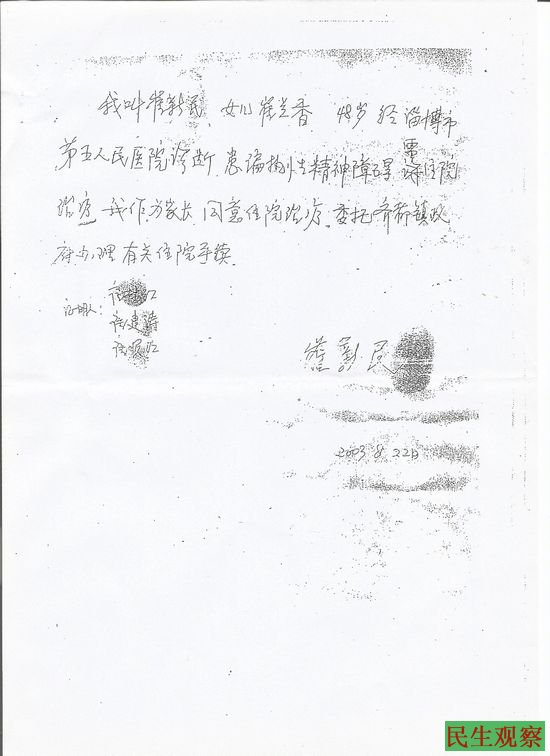 我叫崔新民,女儿崔兰香 48岁 经淄博市
第五人民医院诊断.患偏执性精神障碍需住院
治疗 我作为家长同意住院治疗.委托齐都镇政
府办理有关住院手续.
证明人:
民
2003 8 22日
民生观察